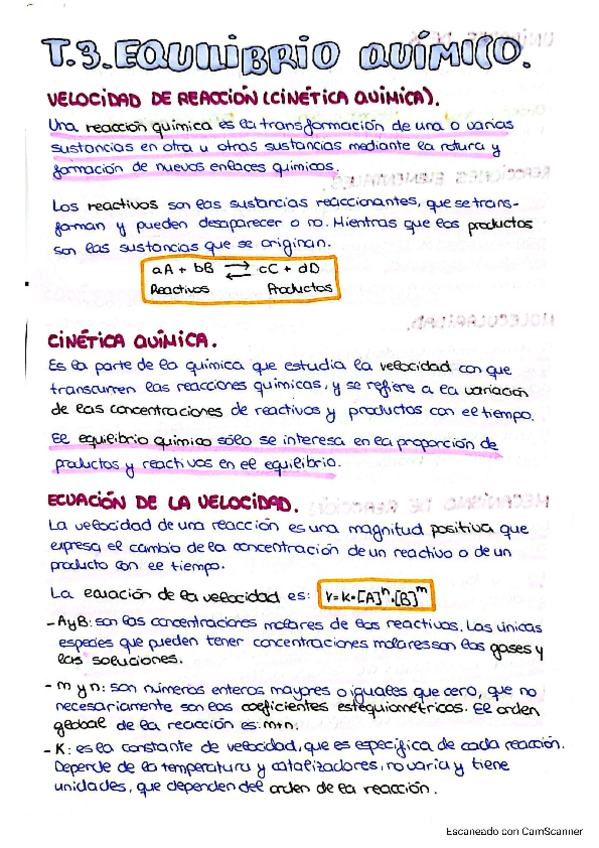 T.3. EQUILIBRIO QUÍMICO.
VELOCIDAD DE REACCIÓN (CINÉTICA QUÍMICA).
Una reacción química es la transformación de una o varias
sustancias en otra u otras sustancias mediante la rotura y
formación de nuevos enlaces químicos.
Los reactivos son las sustancias reaccionantes, que se trans-
forman y pueden desaparecer o no. Mientras que los productos
son las sustancias que se originan.
aA + bB ⇄ cC + dD
Reactivos Productos
CINÉTICA QUÍMICA.
Es la parte de la química que estudia la velocidad con que
transcurren las reacciones químicas, y se refiere a la variación
de las concentraciones de reactivos y productos con el tiempo.
El equilibrio químico sólo se interesa en la proporción de
productos y reactivos en el equilibrio.
ECUACIÓN DE LA VELOCIDAD.
La velocidad de una reacción es una magnitud positiva que
expresa el cambio de la concentración de un reactivo o de un
producto con el tiempo.
La ecuación de la velocidad es: V=K•[A]ⁿ•[B]ᵐ
- A y B: son las concentraciones molares de los reactivos. Las únicas
especies que pueden tener concentraciones molares son los gases y
las soluciones.
- m y n: son números enteros mayores o iguales que cero, que no
necesariamente son los coeficientes estequiométricos. El orden
global de la reacción es: m+n.
- K: es la constante de velocidad, que es específica de cada reacción.
Depende de la temperatura y catalizadores, no varía y tiene
unidades, que dependen del orden de la reacción.
Escaneado con CamScanner